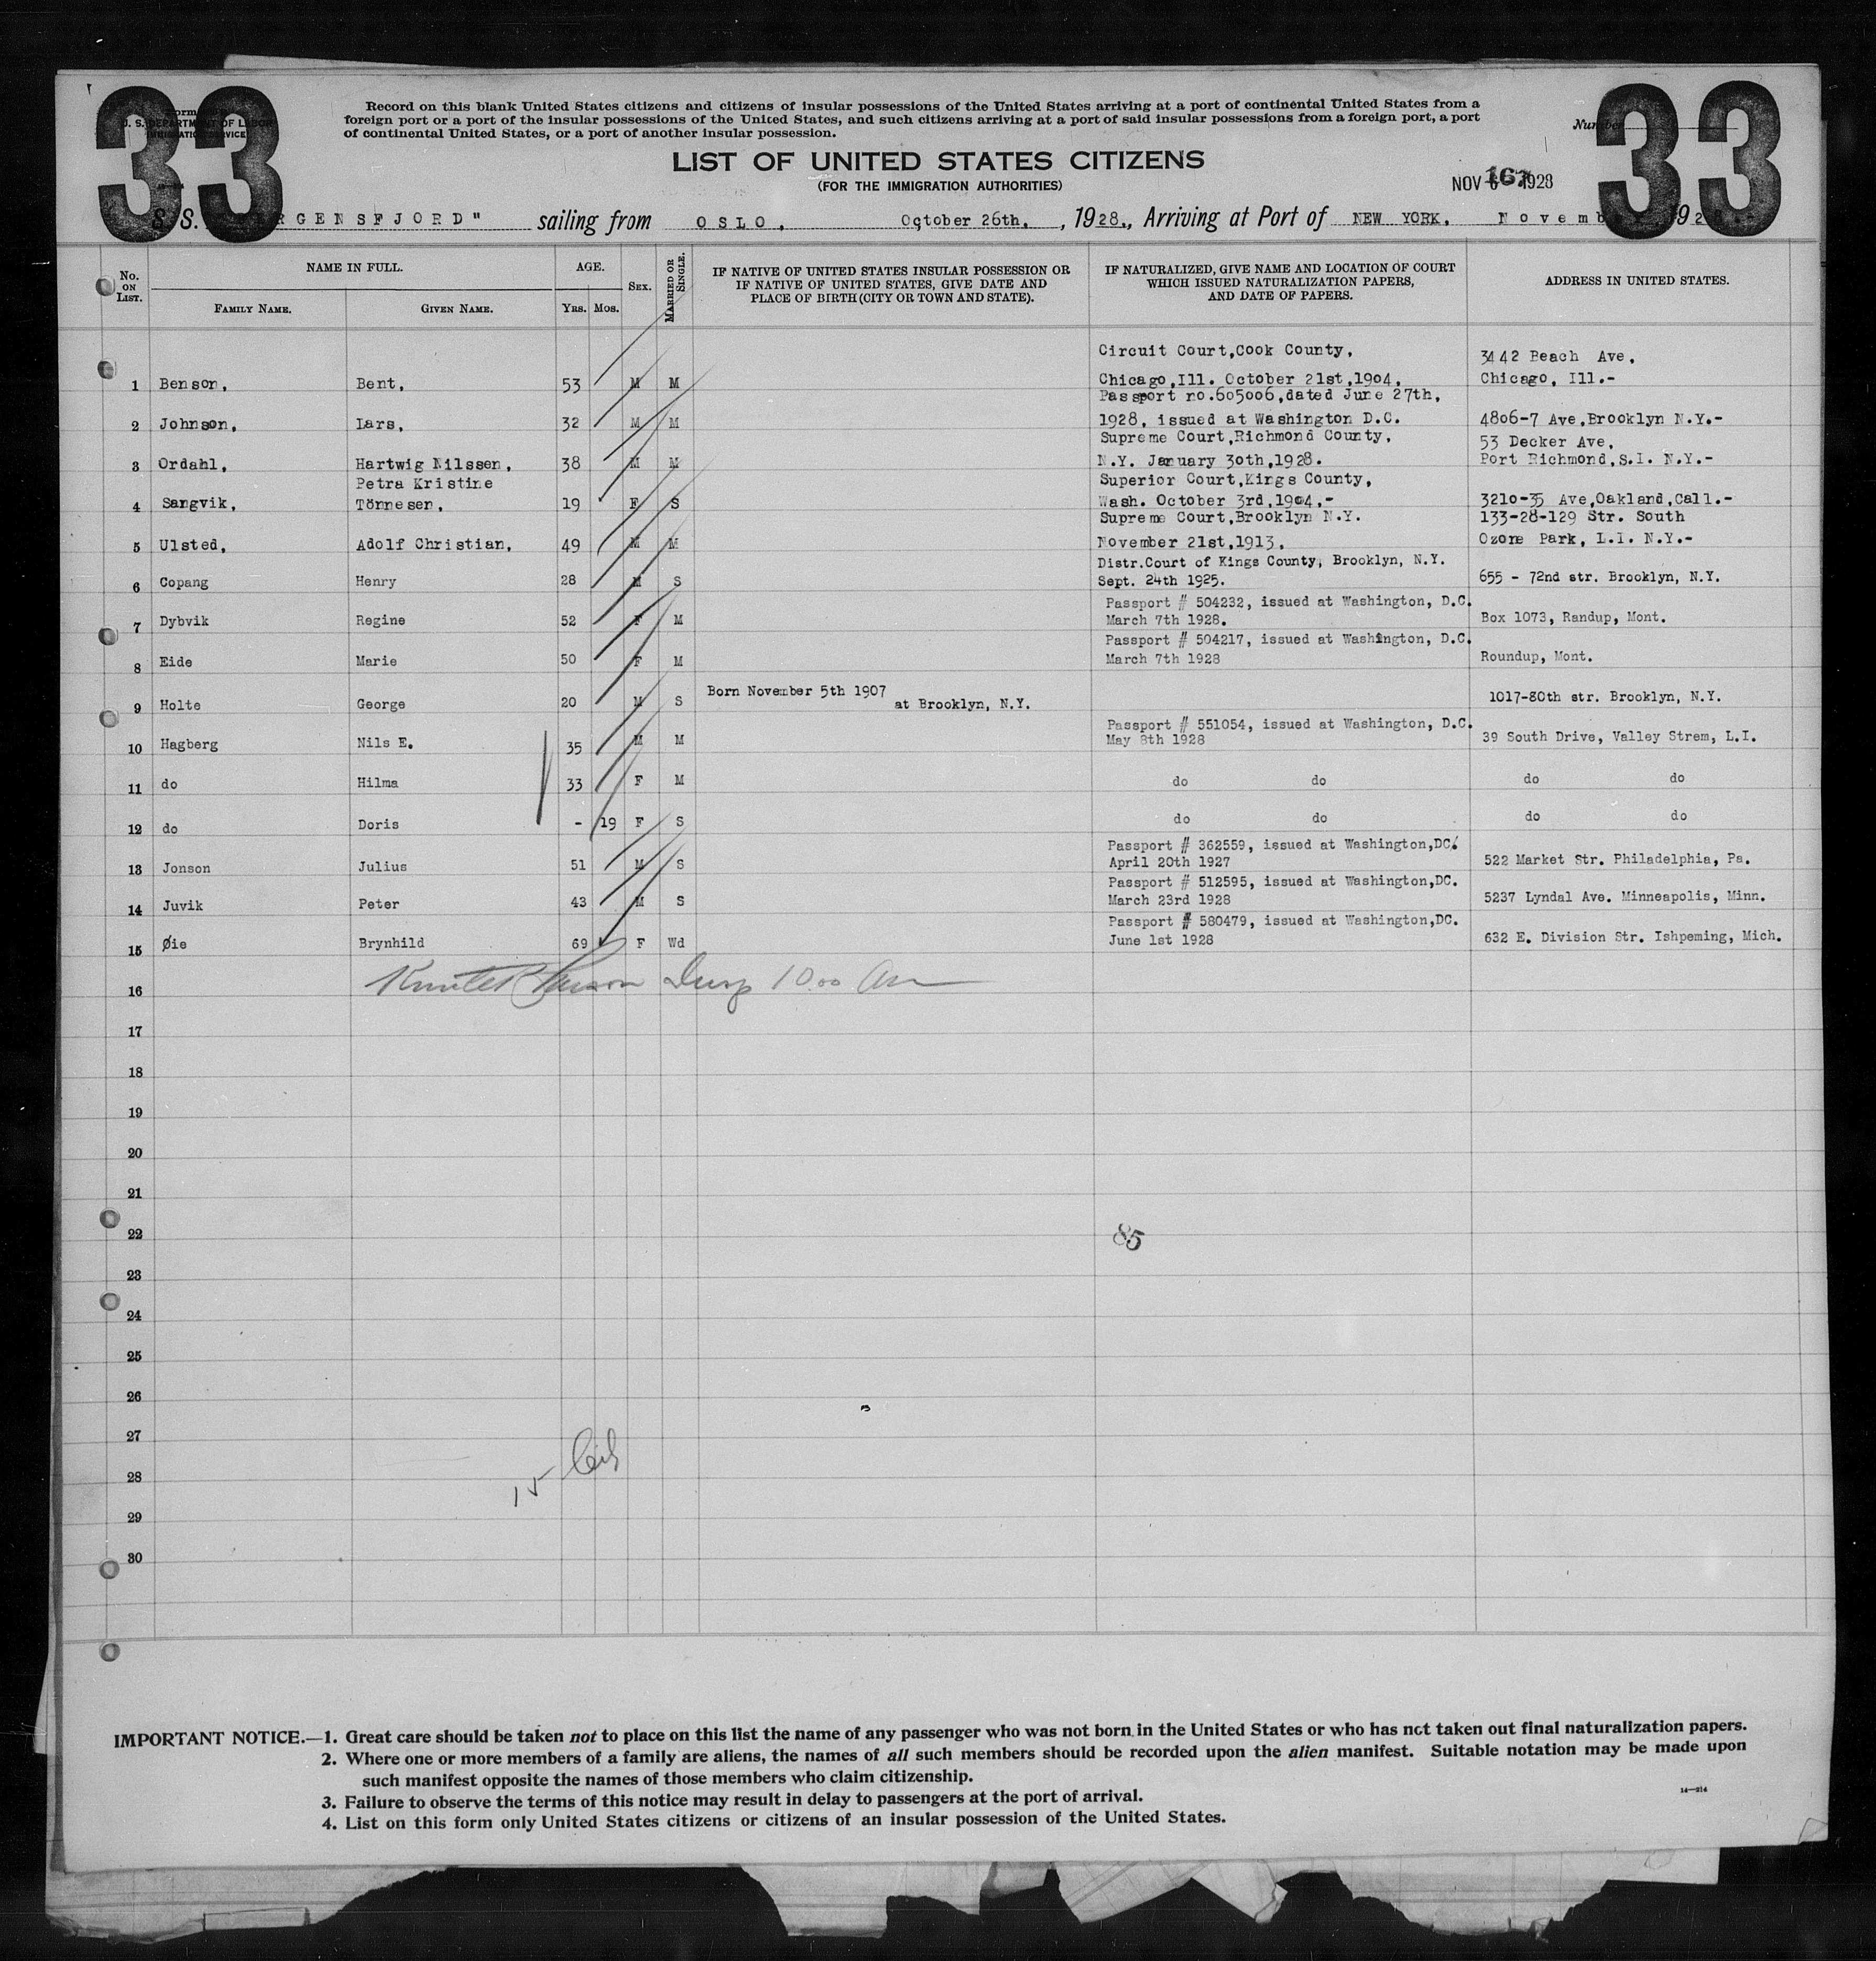 33
33
Form
U. S. DEPARTMENT OF LABOR
IMMIGRATION SERVICE
Record on this blank United States citizens and citizens of insular possessions of the United States arriving at a port of continental United States from a
foreign port or a port of the insular possessions of the United States, and such citizens arriving at a port of said insular possessions from a foreign port, a port
of continental United States, or a port of another insular possession.
Number
LIST OF UNITED STATES CITIZENS
(FOR THE IMMIGRATION AUTHORITIES)
NOV 1928
S. S. RGENSFJORD" sailing from OSLO, October 26th, , 1928., Arriving at Port of NEW YORK, Novemb 192
No. ON LIST.
NAME IN FULL.
FAMILY NAME.
GIVEN NAME.
AGE.
YRS.
MOS.
SEX.
MARRIED OR SINGLE.
IF NATIVE OF UNITED STATES INSULAR POSSESSION OR
IF NATIVE OF UNITED STATES, GIVE DATE AND
PLACE OF BIRTH (CITY OR TOWN AND STATE).
IF NATURALIZED, GIVE NAME AND LOCATION OF COURT
WHICH ISSUED NATURALIZATION PAPERS,
AND DATE OF PAPERS.
ADDRESS IN UNITED STATES.
Circuit Court,Cook County, 3442 Beach Ave,
1 Benson, Bent, 53 M M Chicago,Ill. October 21st,1904, Chicago, Ill.-
Passport no.605006,dated June 27th,
2 Johnson, Lars, 32 M M 1928, issued at Washington D.C. 4806-7 Ave,Brooklyn N.Y.-
Supreme Court,Richmond County, 53 Decker Ave,
3 Ordahl, Hartwig Nilssen, 38 M M N.Y. January 30th,1928. Port Richmond,S.I. N.Y.-
Petra Kristine Superior Court,Kings County,
4 Sangvik, Tönnesen, 19 F S Wash. October 3rd,1904,- 3210-35 Ave,Oakland,Call.-
Supreme Court,Brooklyn N.Y. 133-28-129 Str. South
5 Ulsted, Adolf Christian, 49 M M November 21st,1913, Ozone Park, L.I. N.Y.-
Distr.Court of Kings County, Brooklyn, N.Y.
6 Copang Henry 28 M S Sept. 24th 1925. 655 - 72nd str. Brooklyn, N.Y.
Passport # 504232, issued at Washington, D.C.
7 Dybvik Regine 52 F M March 7th 1928. Box 1073, Randup, Mont.
Passport # 504217, issued at Washington, D.C.
8 Eide Marie 50 F M March 7th 1928 Roundup, Mont.
Born November 5th 1907
9 Holte George 20 M S at Brooklyn, N.Y. 1017-80th str. Brooklyn, N.Y.
Passport # 551054, issued at Washington, D.C.
10 Hagberg Nils E. 35 M M May 8th 1928 39 South Drive, Valley Strem, L.I.
11 do Hilma 33 F M do do do do
12 do Doris - 19 F S do do do do
Passport # 362559, issued at Washington,DC.
13 Jonson Julius 51 M S April 20th 1927 522 Market Str. Philadelphia, Pa.
Passport # 512595, issued at Washington,DC.
14 Juvik Peter 43 M S March 23rd 1928 5237 Lyndal Ave. Minneapolis, Minn.
Passport # 580479, issued at Washington,DC.
15 Øie Brynhild 69 F Wd June 1st 1928 632 E. Division Str. Ishpeming, Mich.
Insp 10.00 Am
16
17
18
19
20
21
22 85
23
24
25
26
27
28
15
29
30
IMPORTANT NOTICE.—1. Great care should be taken not to place on this list the name of any passenger who was not born in the United States or who has not taken out final naturalization papers.
2. Where one or more members of a family are aliens, the names of all such members should be recorded upon the alien manifest. Suitable notation may be made upon
such manifest opposite the names of those members who claim citizenship.
3. Failure to observe the terms of this notice may result in delay to passengers at the port of arrival.
4. List on this form only United States citizens or citizens of an insular possession of the United States.
14—214